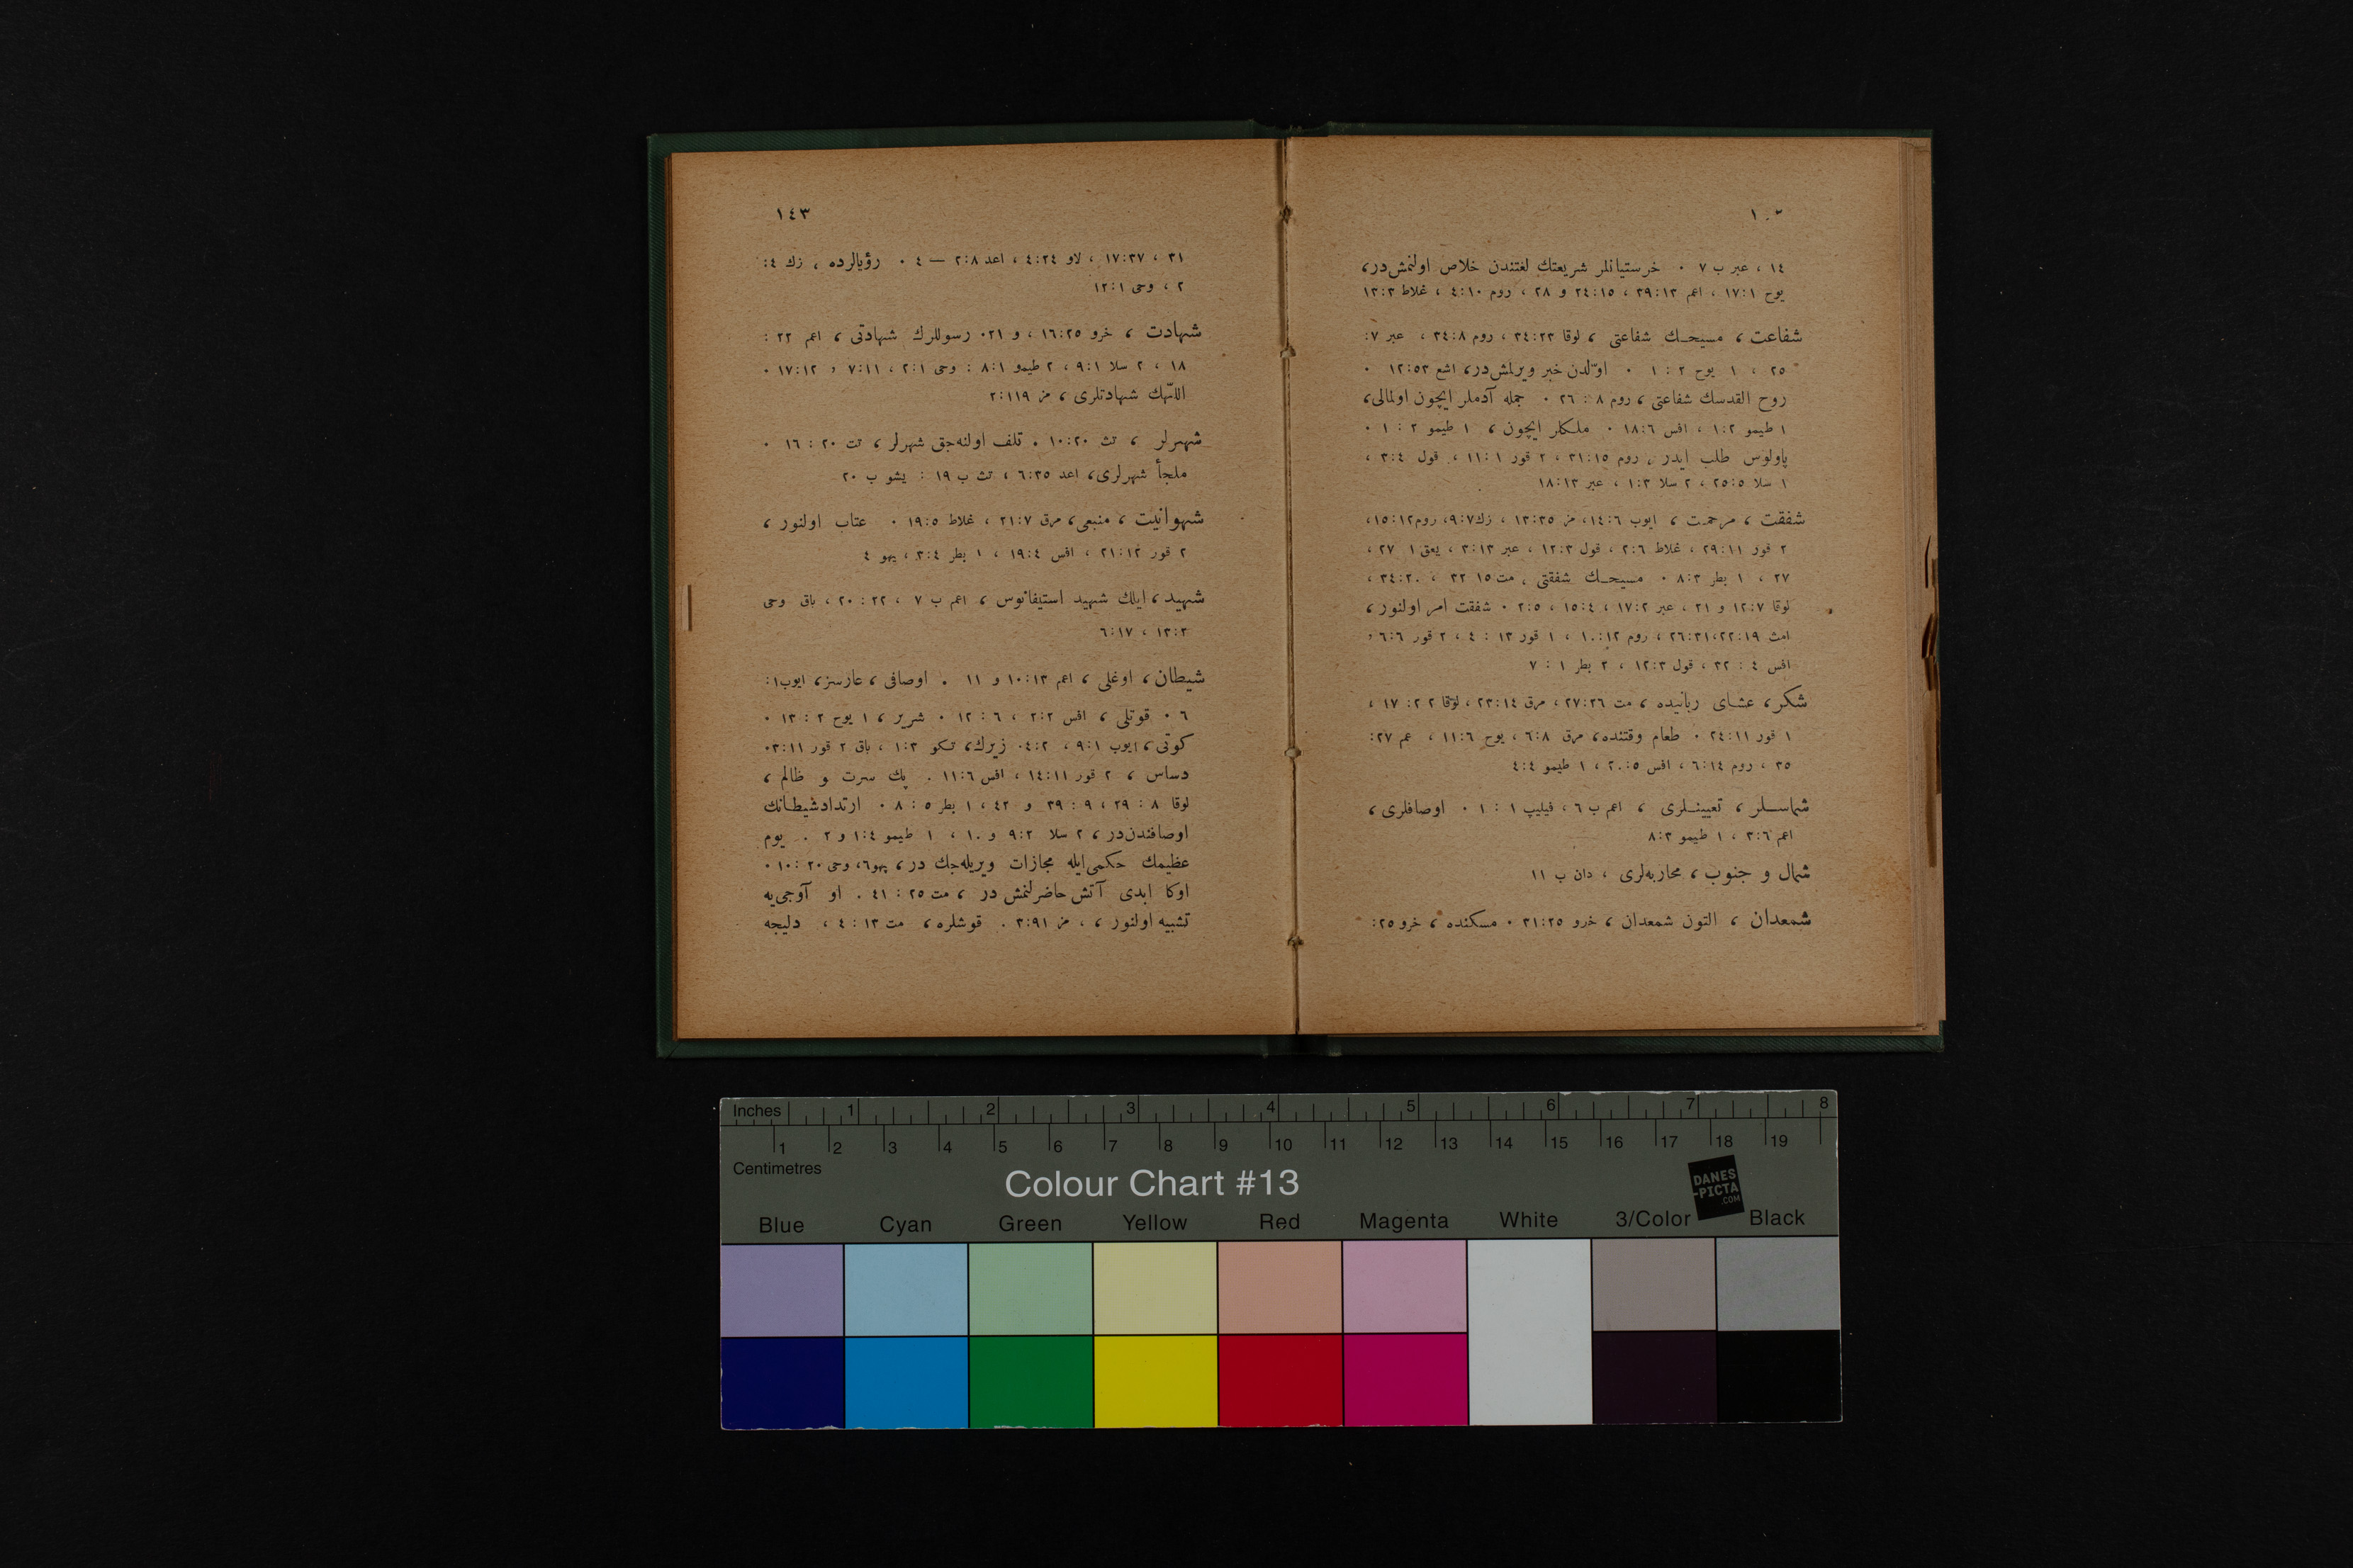 ١٤ ، عبر ب ٧ ۰ خرستيانلر شريعتك لغتندن خلاص اولنمش‌در،
يوح ١:١٧ ، اعم ١٣:٣٩ ، ١٥:٢٤ و ٢٨ ، روم ١٠:٤ ، غلاط ٣:١٣
شفاعت ، مسيحك شفاعتى ، لوقا ٢٣:٣٤ ، روم ٨:٣٤ ، عبر ٧:
٢٥ ، ١ يوح ٢ : ١ ۰ اوّلدن خبر ويرلمش‌در، اشع ٥٣:١٢ ۰
روح القدسك شفاعتى ، روم ٨ : ٢٦ ۰ جمله آدملر ايچون اولمالى،
١ طيمو ٢:١ ، افس ٦:١٨ ۰ ملكلر ايچون ، ١ طيمو ٢ : ١ ۰
پاولوس طلب ايدر ، روم ١٥:٣١ ، ٢ قور ١:١١ ، قول ٤:٣ ،
١ سلا ٥:٢٥ ، ٢ سلا ٣:١ ، عبر ١٣:١٨
شفقت ، مرحمت ، ايوب ٦:١٤، مز ٣٥:١٣ ، زك ٧:٩، روم ١٢:١٥،
٢ قور ١١:٢٩ ، غلاط ٦:٢ ، قول ٣:١٢ ، عبر ١٣:٣ ، يعق ١ ٢٧ ،
٢٧ ، ١ بطر ٣:٨ ۰ مسيحك شفقتى ، مت ١٥ ٣٢ ، ٢٠:٣٤ ،
لوقا ٧:١٢ و ٢١ ، عبر ٢:١٧ ، ٤:١٥ ، ٥:٢ ۰ شفقت امر اولنور ،
امث ١٩:٢٢،٣١:٢٦ ، روم ١٢:١٠ ، ١ قور ١٣ : ٤ ، ٢ قور ٦:٦ ،
افس ٤ : ٣٢ ، قول ٣:١٢ ، ٢ بطر ١ : ٧
شكر ، عشاى ربانيده ، مت ٢٦:٢٧ ، مرق ١٤:٢٣ ، لوقا ٢٢ : ١٧ ،
١ قور ١١:٢٤ ۰ طعام وقتنده، مرق ٨:٦ ، يوح ٦:١١ ، عم ٢٧:
٣٥ ، روم ١٤:٦ ، افس ٥:٢٠ ، ١ طيمو ٤:٤
شماسلر ، تعيينلرى ، اعم ب ٦ ، فيليپ ١ : ١ ۰ اوصافلرى ،
اعم ٦:٣ ، ١ طيمو ٣:٨
شمال و جنوب ، محاربه‌لرى ، دان ب ١١
شمعدان ، التون شمعدان ، خرو ٢٥:٣١ ۰ مسكنده ، خرو ٢٥:
١٤٣
٣١ ، ٣٧:١٧ ، لاو ٢٤:٤ ، اعد ٨:٢ — ٤ ۰ رؤيالرده ، زك ٤:
٢ ، وحى ١:١٢
شهادت ، خرو ٢٥:١٦ ، و ٢١ ۰ رسوللرك شهادتى ، اعم ٢٢ :
١٨ ، ٢ سلا ١:٩ ، ٢ طيمو ١:٨ : وحى ١:٢ ، ١١:٧ ، ١٢:١٧ ۰
اللّٰهك شهادتلرى ، مز ١١٩:٢
شهرلر ، تث ٢٠:١٠ ۰ تلف اولنه‌جق شهرلر ، تث ٢٠ : ١٦ ۰
ملجأ شهرلرى، اعد ٣٥:٦ ، تث ب ١٩ : يشو ب ٢٠
شهوانيت ، منبعى ، مرق ٧:٢١ ، غلاط ٥:١٩ ۰ عتاب اولنور ،
٢ قور ١٢:٢١ ، افس ٤:١٩ ، ١ بطر ٤:٣ ، يهو ٤
شهيد ، ايلك شهيد استيفانوس ، اعم ب ٧ ، ٢٢ : ٢٠ ، باق وحى
٢:١٣ ، ١٧:٦
شيطان ، اوغلى ، اعم ١٣:١٠ و ١١ ۰ اوصافى ، عارسز، ايوب ١:
٦ ۰ قوتلى ، افس ٢:٢ ، ٦ : ١٢ ۰ شرير ، ١ يوح ٢ : ١٣ ۰
كوتى، ايوب ١:٩ ، ٢:٤ ۰ زيرك، تكو ٣:١ ، باق ٢ قور ١١:٣ ۰
دساس ، ٢ قور ١١:١٤ ، افس ٦:١١ ۰ پك سرت و ظالم ،
لوقا ٨ : ٢٩ ، ٩ : ٣٩ و ٤٢ ، ١ بطر ٥ : ٨ ۰ ارتداد شيطانك
اوصافندن‌در ، ٢ سلا ٢:٩ و ١٠ ، ١ طيمو ٤:١ و ٢ ۰ يوم
عظيمك حكمى‌ايله مجازات ويريله‌جك در ، يهو ٦، وحى ٢٠ : ١٠ ۰
اوكا ابدى آتش حاضرلنمش در ، مت ٢٥ : ٤١ ۰ او آوجى‌يه
تشبيه اولنور ، ، مز ٩١:٣ ۰ قوشلره ، مت ١٣ : ٤ ، دليجه
Inches 1 2 3 4 5 6 7 8
1 2 3 4 5 6 7 8 9 10 11 12 13 14 15 16 17 18 19
Centimetres
Colour Chart #13
DANES
-PICTA
.COM
Blue Cyan Green Yellow Red Magenta White 3/Color Black